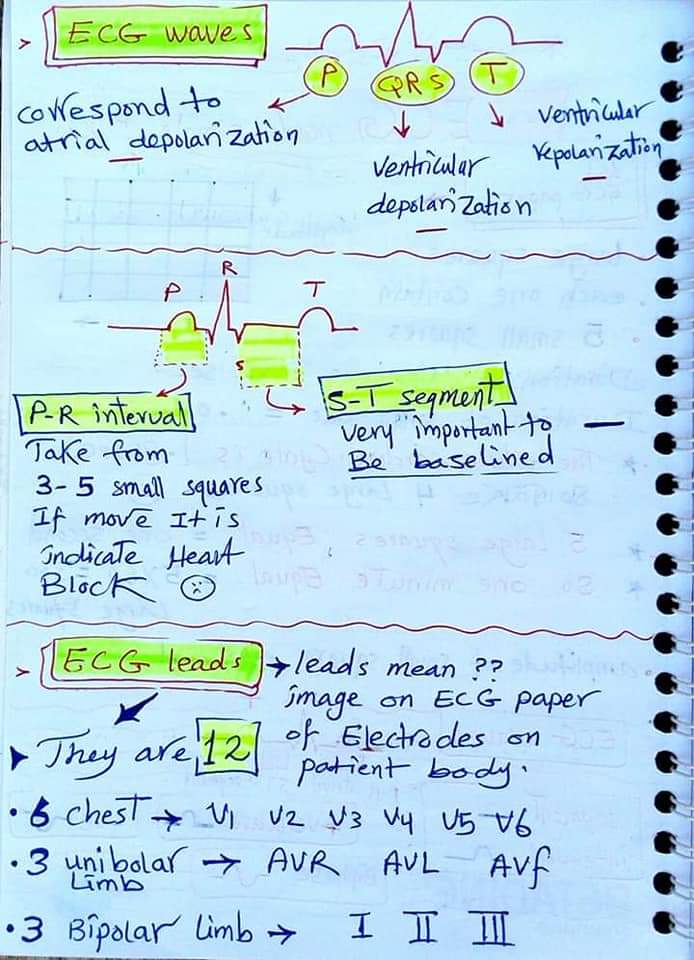 > ECG waves
P QRS T
correspond to
atrial depolarization
ventricular
depolarization
ventricular
repolarization
P R T
S
P-R interval
Take from
3-5 small squares
If move It is
indicate Heart
Block ☹
S-T segment
very important to
Be baselined
> ECG leads → leads mean ??
image on ECG paper
of Electrodes on
patient body.
They are 12
• 6 chest → V1 V2 V3 V4 V5 V6
• 3 unibolar → AVR AVL AVf
Limb
• 3 Bipolar Limb → I II III